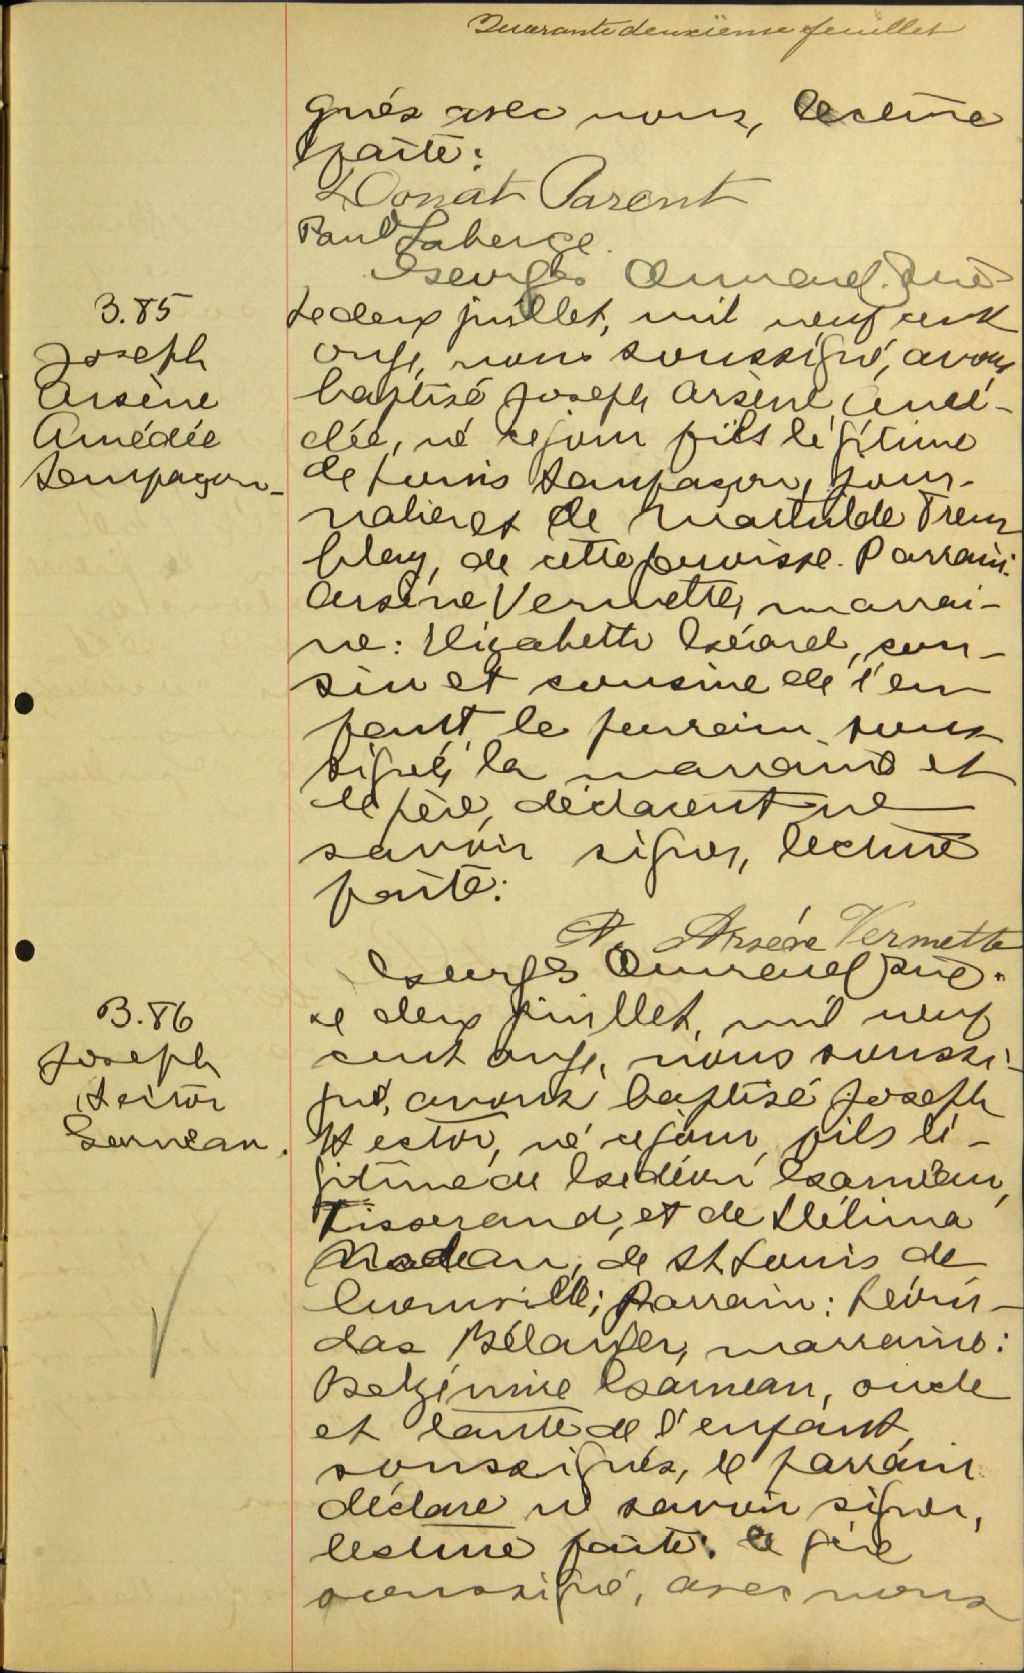 Quarante deuxième feuillet
gnés avec nous, lecture
faite:
L Donat Parent
Paul Laberge.
Georges Ouvrard. Ptre
B.85
Joseph
Arsène
Amédée
Lempaçon
Le deux juillet, mil neuf cent
onze, nous soussigné, avons
baptisé Joseph Arsène Amé-
dée, né ce jour fils légitime
de Louis Lampaçon, jour-
nalier et de Mathilde Trem
blay, de cette paroisse. Parrain:
Arsène Vermette, marrai-
ne: Elizabeth, cou-
sin et cousine de l'en
fant, le parrain sous
signé, la marraine et
le père, déclarent ne
savoir signer, lecture
faite:
A. Arsène Vermette
Georges Ouvrard ptre.
B.86
Joseph
Hector
Garnéau.
Le deux juillet, mil neuf
cent onze, nous soussi-
gné, avons baptisé Joseph
Hector, né ce jour, fils lé-
gitime de Gédéon Garneau,
Tisserand, et de Délima
Nadeau, de St Louis de
Courville; parrain: Léoni-
das Bélanger, marraine:
Garneau, oncle
et tante de l'enfant,
soussignés, le parrain
déclare ne savoir signer,
lecture faite: le père
soussigné, avec nous